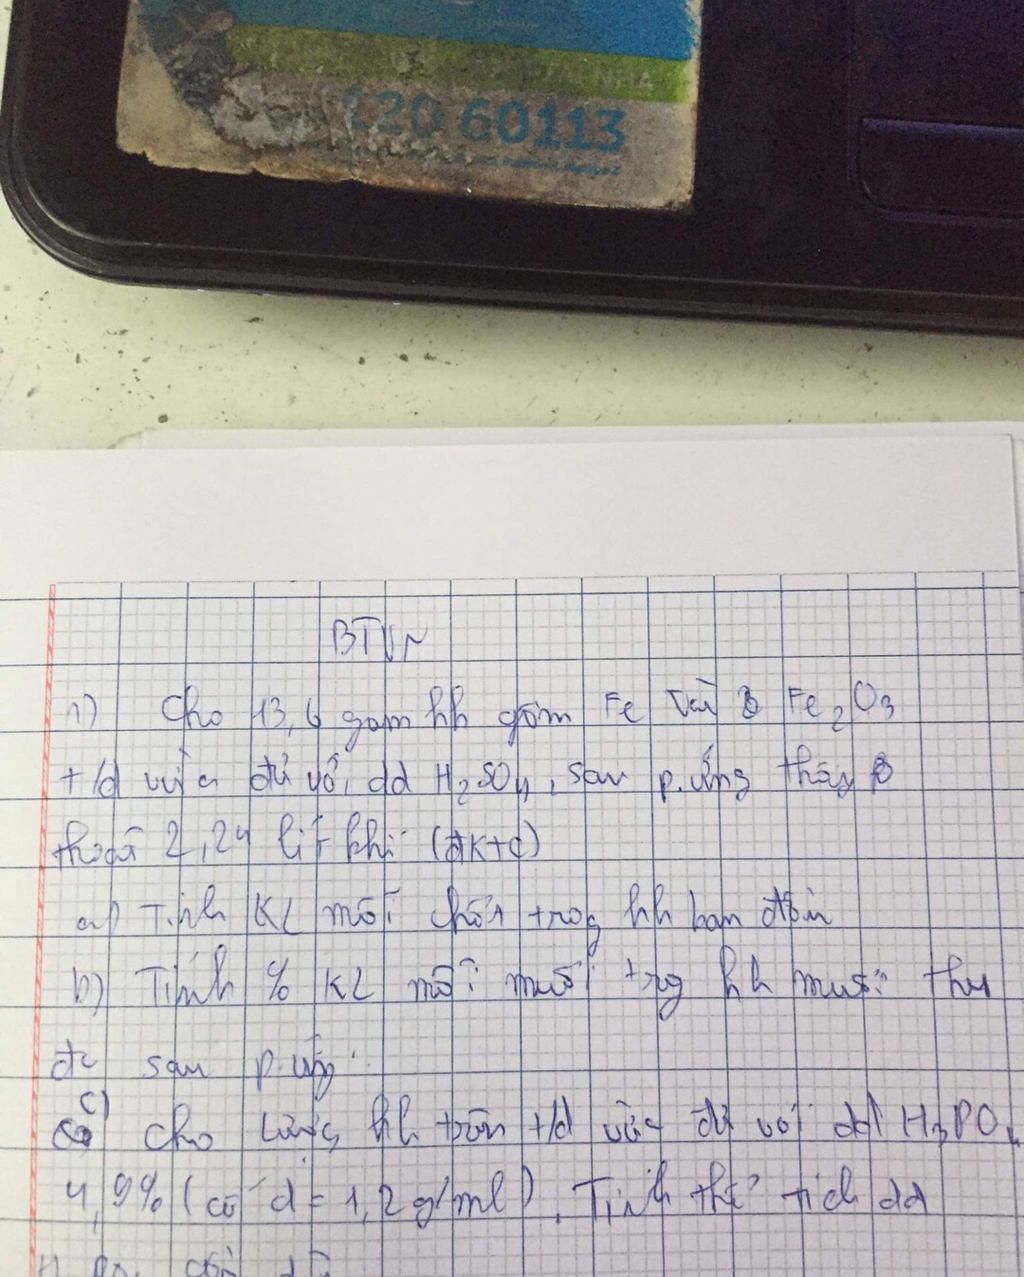 NHA
120 60113
BTVN
1) Cho 13,6 gam hh gồm Fe và Fe2O3
t/d vừa đủ với dd H2SO4, sau p.ứng thấy
thoát 2,24 lít khí (đktc)
a) Tính KL mỗi chất trog hh ban đầu
b) Tính % KL mỗi muối trg hh muối thu
đc sau p.ứng.
c) Cho lượng hh trên t/d vừa đủ với dd H3PO4
4,9% (có d = 1,2 g/ml). Tính thể tích dd
cần